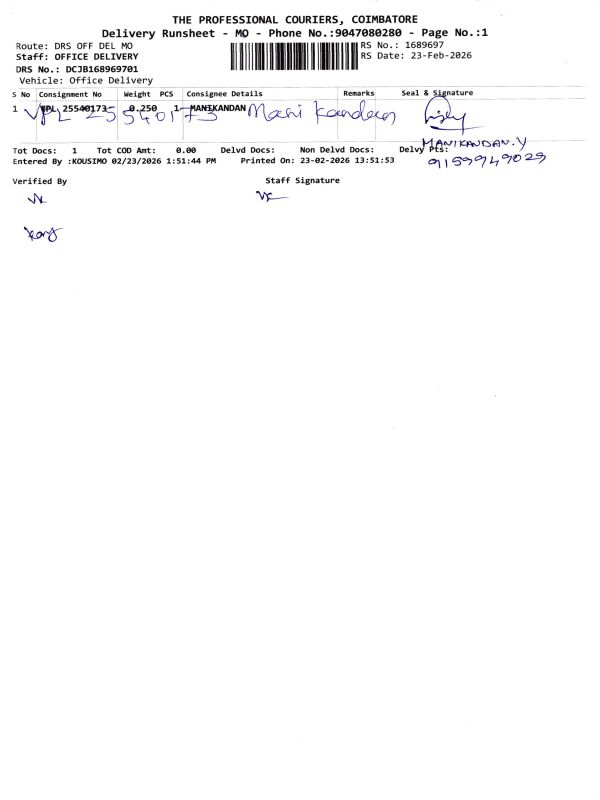 THE PROFESSIONAL COURIERS, COIMBATORE
Delivery Runsheet - MO - Phone No.:9047080280 - Page No.:1
Route: DRS OFF DEL MO
RS No.: 1689697
Staff: OFFICE DELIVERY
RS Date: 23-Feb-2026
DRS No.: DCJB168969701
Vehicle: Office Delivery
S No Consignment No Weight PCS Consignee Details Remarks Seal & Signature
1 VPL 25540173 0.250 1 MANIKANDAN
VPL 25540173 Mani kandan
MANIKANDAN.V
Tot Docs: 1 Tot COD Amt: 0.00 Delvd Docs: Non Delvd Docs: Delvy Pts:
91 59949029
Entered By :KOUSIMO 02/23/2026 1:51:44 PM Printed On: 23-02-2026 13:51:53
Verified By Staff Signature